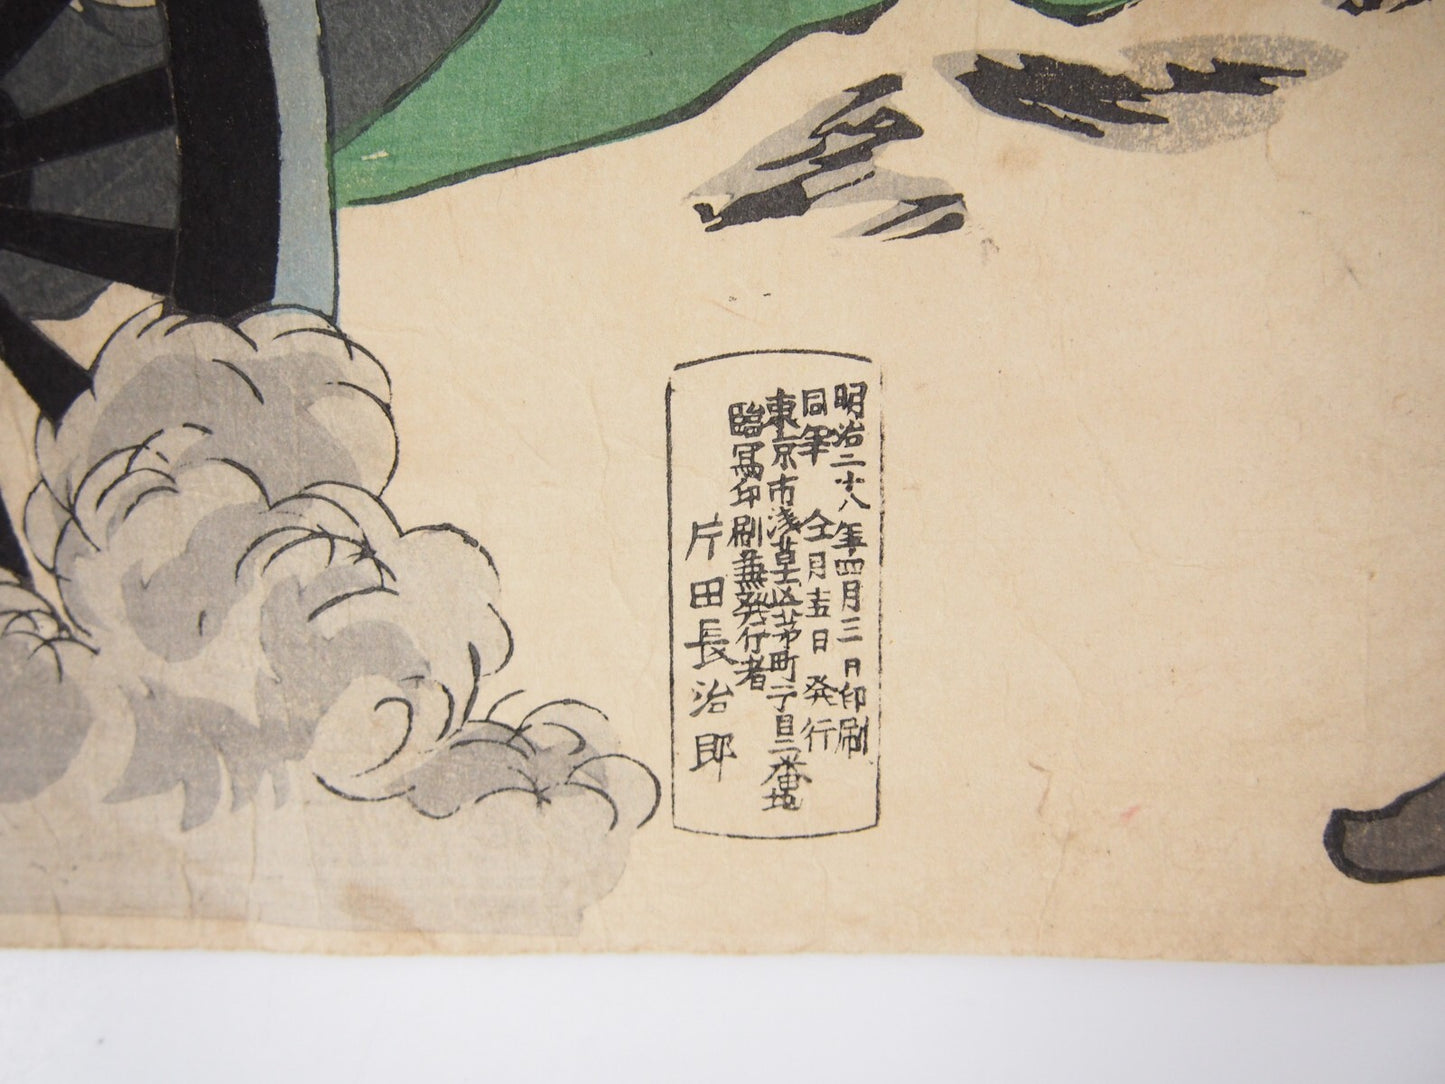 明治二十八年四月三日印刷
同年仝月五日発行
東京市浅草区茅町二丁目二番地
臨写印刷兼発行者
片田長治郎